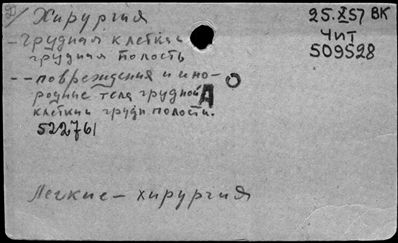 Хирургия
25.X57 ВК
– грудная клетка и
грудная полость
Чит
509528
-- повреждения и ино-
родные тела грудной
клетки и грудн полости.
А
522761
Легкие – хирургия